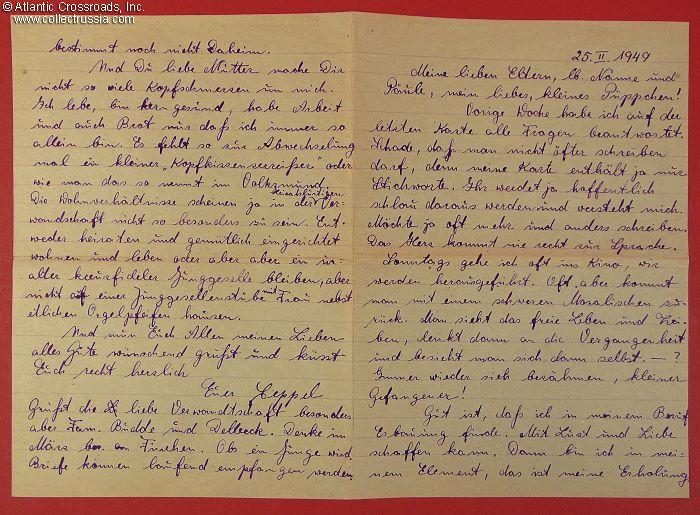 © Atlantic Crossroads, Inc.
www.collectrussia.com
25. II 1949
Meine lieben Eltern, lb. Nannse und
Päule, mein liebes, kleines Püppchen!
Vorige Woche habe ich auf der
letzten Karte alle Fragen beantwortet.
Schade, daß man nicht öfter schreiben
darf, denn meine Karte enthält ja nur
Stichworte. Ihr werdet ja hoffentlich
schlau daraus werden und versteht mich.
Möchte ja oft mehr und anders schreiben.
Das Herz kommt nie recht zur Sprache.
Sonntags gehe ich oft ins Kino, wir
werden herausgeführt. Oft aber kommt
man mit einem schweren Moralischen zu-
rück. Man sieht das freie Leben und Trei-
ben, denkt dann an die Vergangenheit
und besieht man sich dann selbst. — ?
Immer wieder sich bezähmen, kleiner
Gefangener!
Gut ist, daß ich in meinem Beruf
Erbauung finde. Mit Lust und Liebe
schaffen kann. Dann bin ich in mei-
nem Element, das ist meine Erholung
bestimmt noch nicht Daheim.
Und Du liebe Mutter mache Dir
nicht so viele Kopfschmerzen um mich.
Ich lebe, bin kerngesund, habe Arbeit
und auch Brot nur daß ich immer so
allein bin. Es fehlt so zur Abwechselung
mal ein kleiner „Kopfkissenzerreißer" oder
wie man das so nennt im Volksmund.
Die Wohnverhältnisse scheinen ja in der Ver-
wandschaft nicht so besonders zu sein. Ent-
weder heiraten und gemütlich eingerichtet
wohnen und leben oder aber aber ein ur-
alter kreuzfideler Junggeselle bleiben, aber
nicht in einer Junggesellenstube mit Frau nebst
etlichen Orgelpfeifen hausen.
Und nun Euch Allen meinen Lieben
alles Gute wünschend grüßt und küsst
Euch recht herzlich
Euer Seppel
Grüßt die liebe Verwandtschaft besonders
aber Fam. Budde und Delbeck. Denke im
März an Finchen. Ob es ein Junge wird
Briefe können laufend empfangen werden.